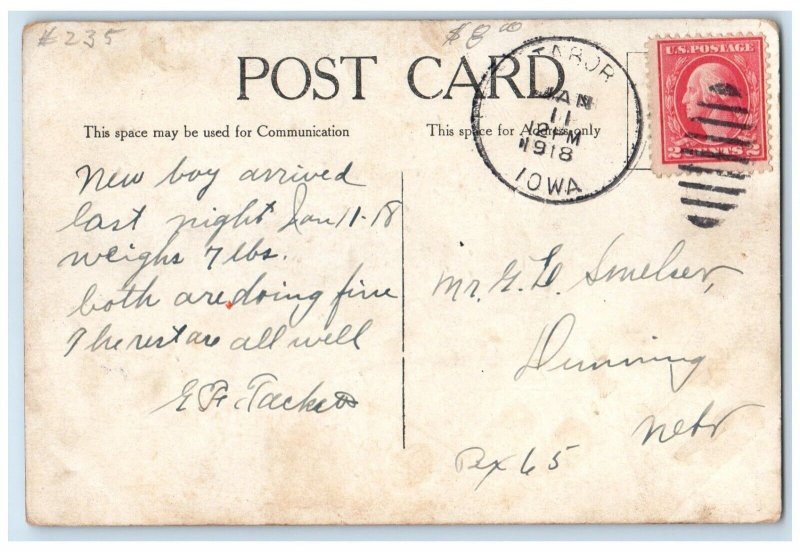 # 235
$8.00
POST CARD
This space may be used for Communication
This space for Address only
TABOR
JAN
11
12 M
1918
IOWA
U.S. POSTAGE
2 CENTS 2
New boy arrived
last night Jan 11-18
weighs 7 lbs.
both are doing fine
The rest are all well
E F. Tackett
Mr. G. L. Smelser,
Dunning
Nebr
Bx 65